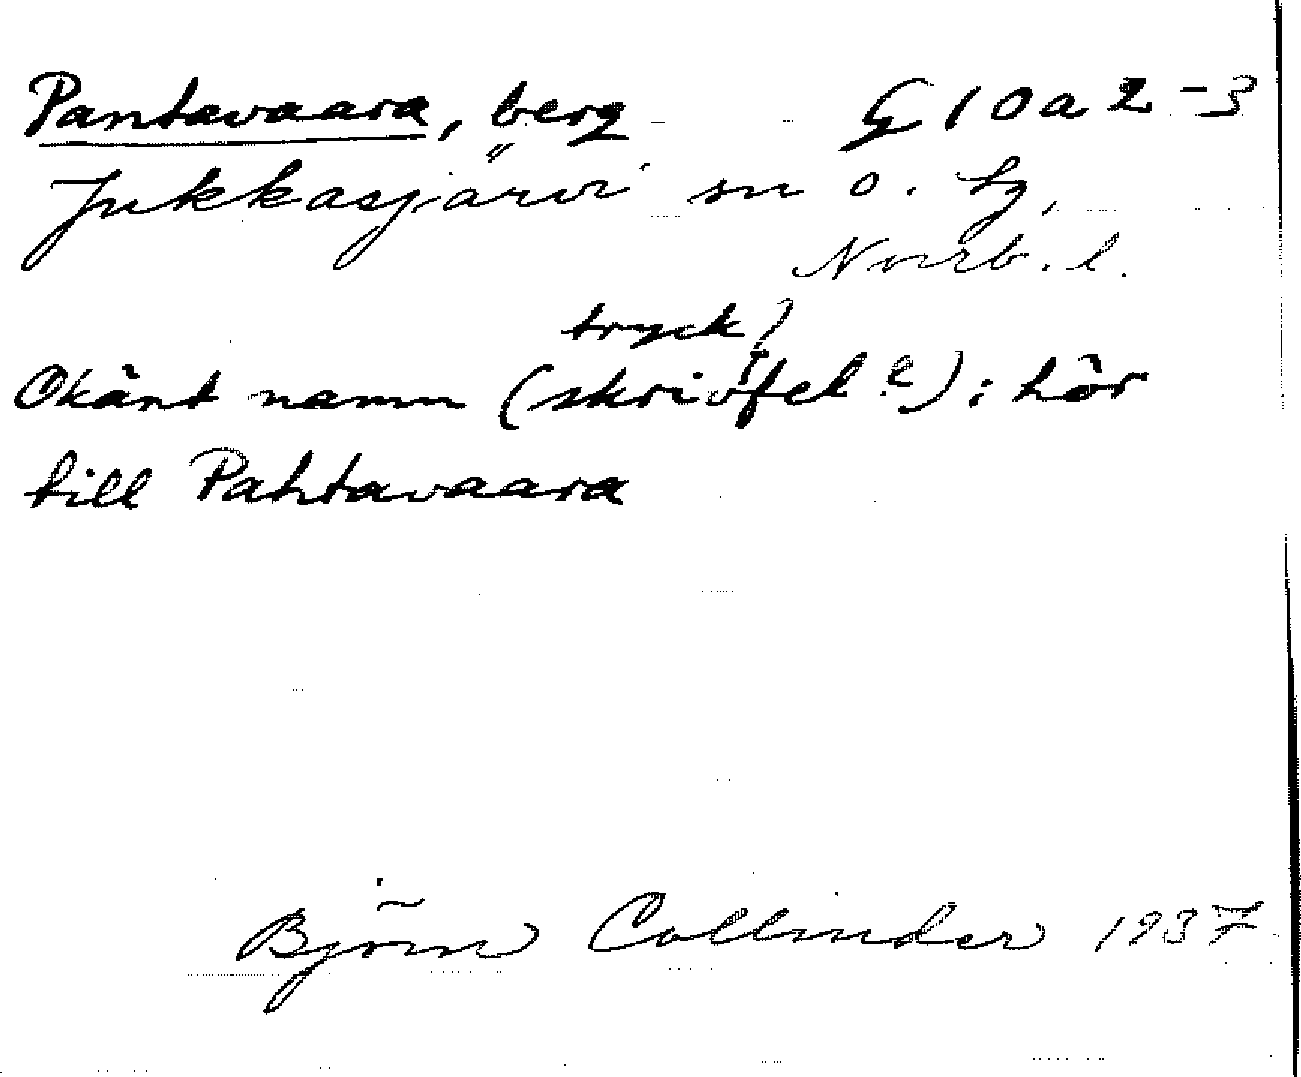 Pantavaara, berg G 10 a 2-3
Jukkasjärvi sn o. tg,
Norrb. l.
tryck?
Okänt namn (skrivfel?); hör
till Pahtavaara
Björn Collinder 1937